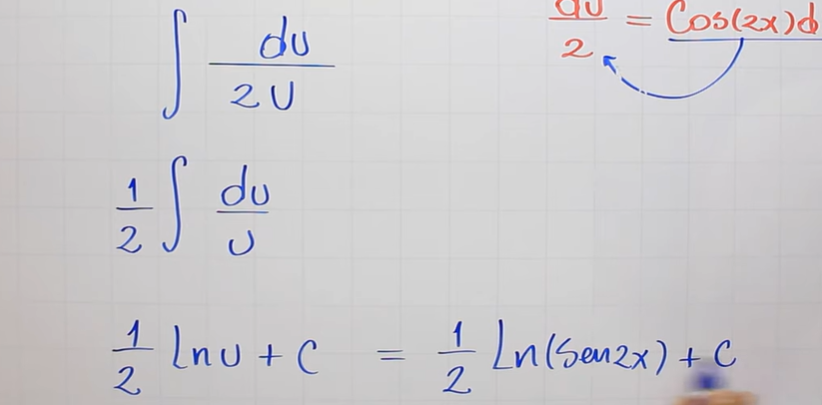 ∫ du / 2U
du / 2 = Cos(2x)d
1/2 ∫ du / U
1/2 Ln U + C = 1/2 Ln(Sen2x) + C